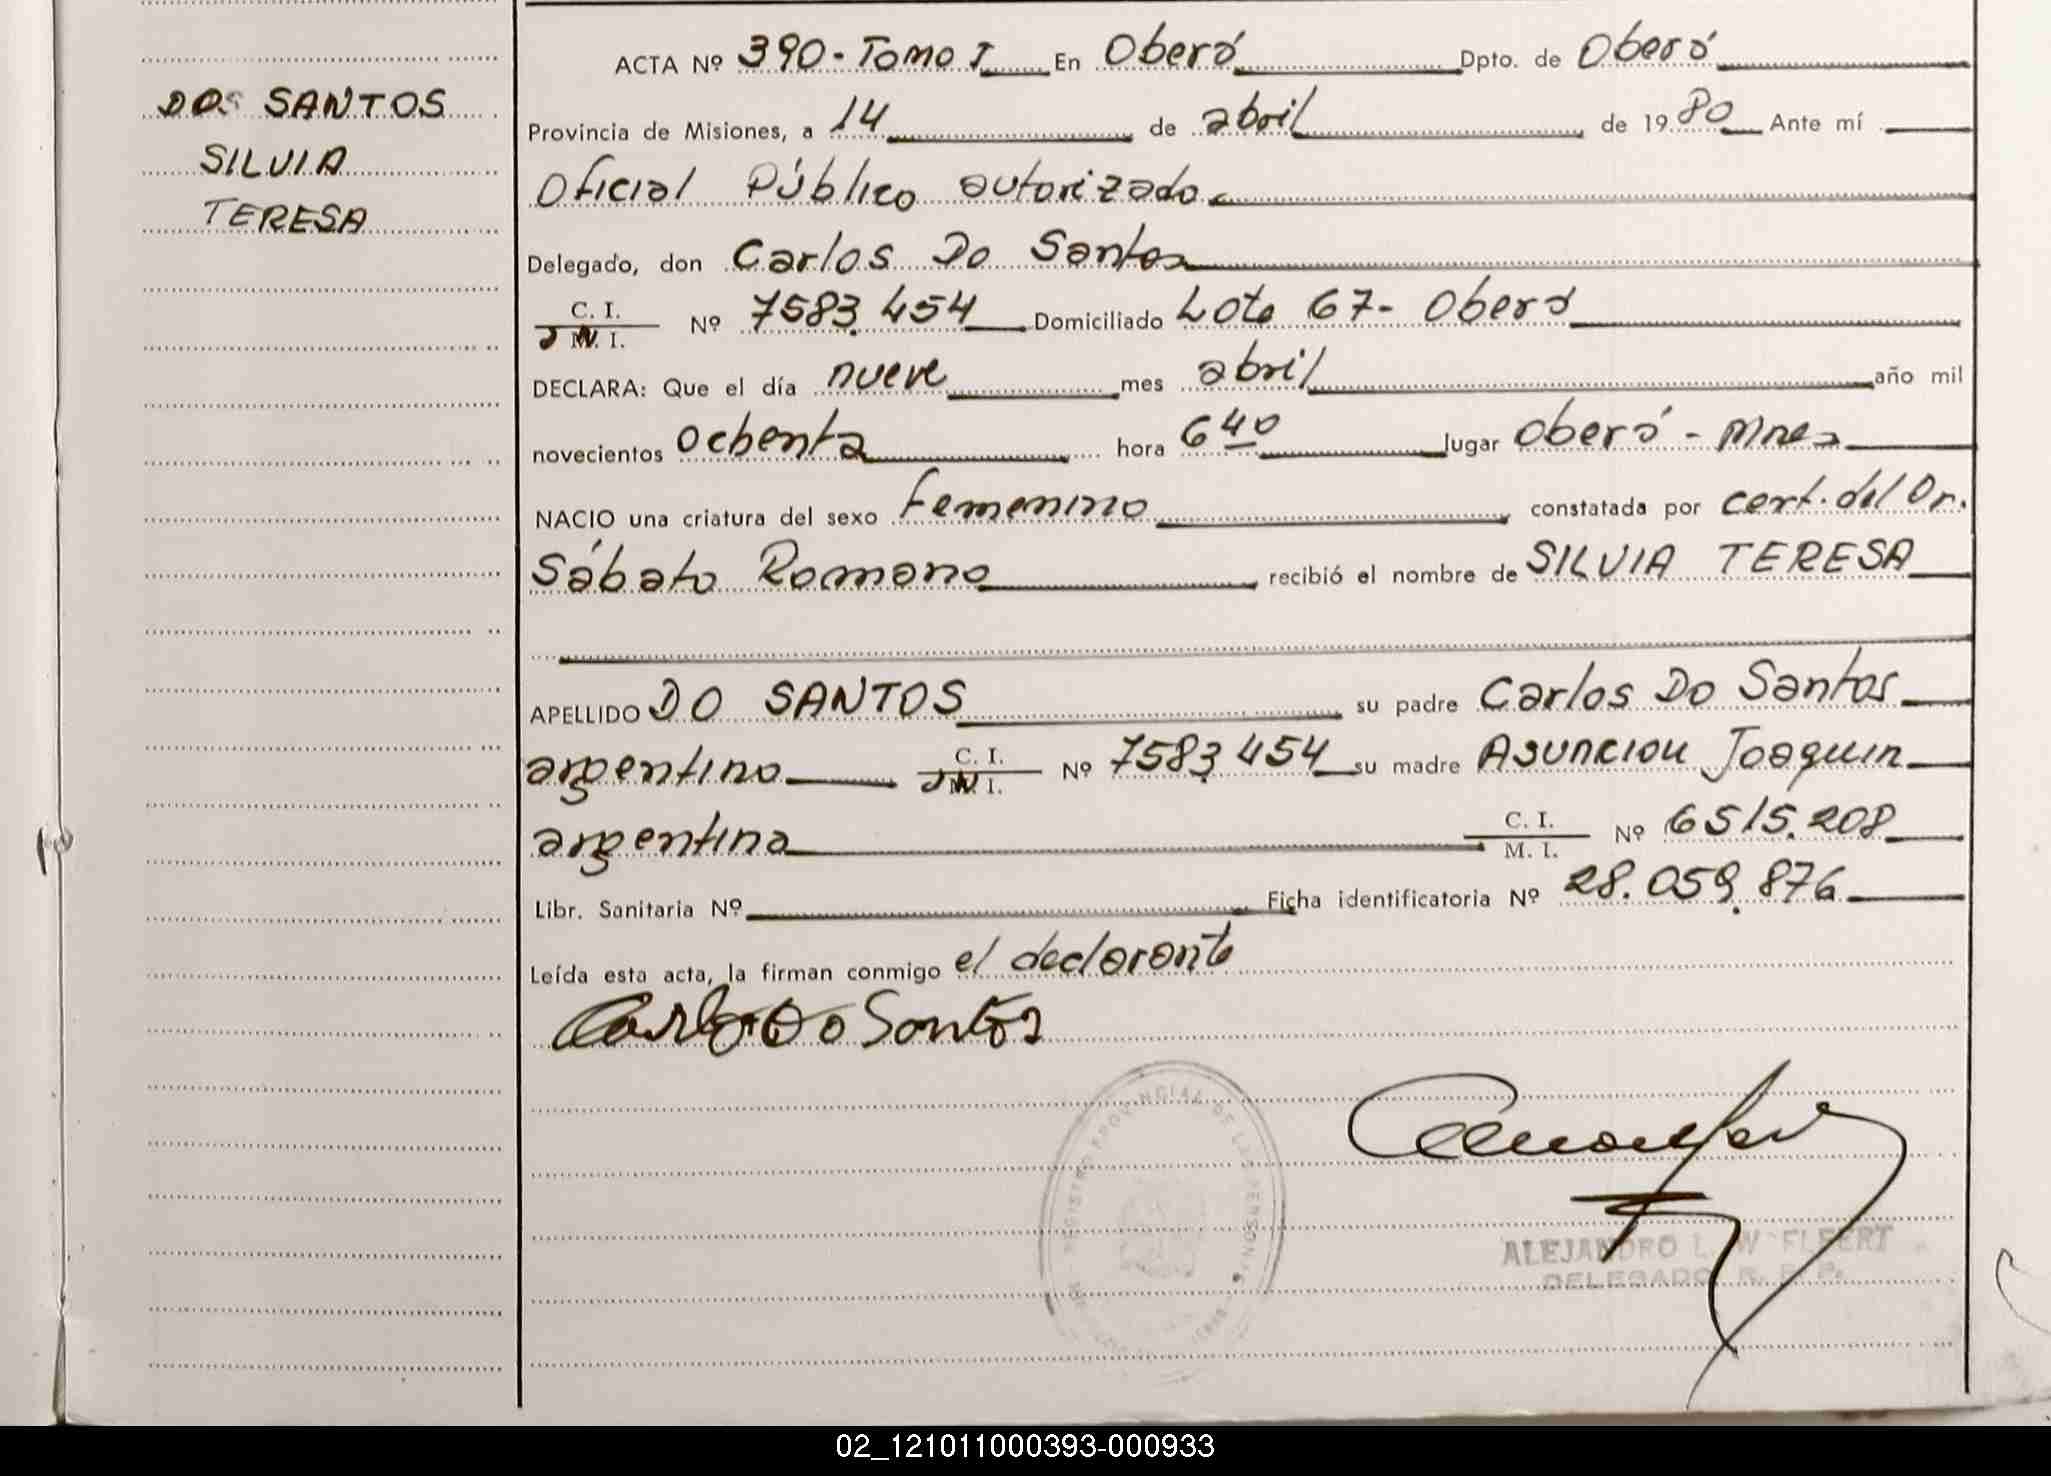 DOS SANTOS
SILVIA
TERESA
ACTA Nº 390 - Tomo I En Oberá Dpto. de Oberá
Provincia de Misiones, a 14 de abril de 1980 Ante mí
Oficial Público autorizado
Delegado, don Carlos Do Santos
C. I.
M. I. Nº 7583.454 Domiciliado Lote 67 - Oberá
DECLARA: Que el día nueve mes abril año mil
novecientos ochenta hora 6 40 lugar Oberá - Mnes
NACIO una criatura del sexo femenino constatada por cert. del Dr.
Sábato Romano recibió el nombre de SILVIA TERESA
APELLIDO DO SANTOS su padre Carlos Do Santos
argentino C. I.
M. I. Nº 7583.454 su madre Asuncion Joaquin
argentina C. I.
M. I. Nº 6515.208
Libr. Sanitaria Nº Ficha identificatoria Nº 28.059.876
Leída esta acta, la firman conmigo el declarante
Carlos Do Santos
REGISTRO PROVINCIAL DE LAS PERSONAS
ALEJANDRO L. W
DELEGADO R. P. P.
02_121011000393-000933